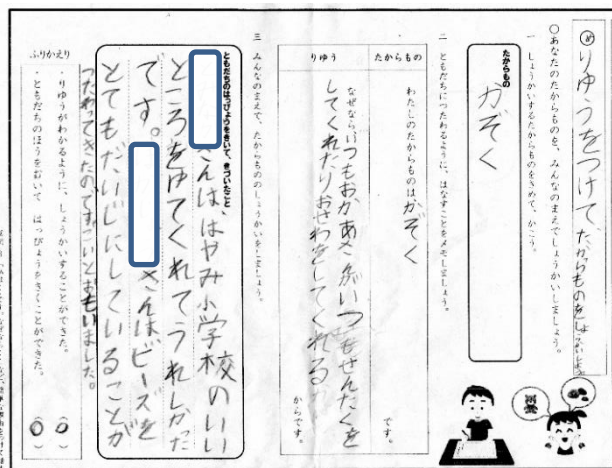 めりゆうをつけて、たからものをしょうかいしよう
〇あなたのたからものを、みんなのまえでしょうかいしましょう。
一 しょうかいするたからものをきめて、かこう。
たからもの
かぞく
二 ともだちにつたわるように、はなすことをメモしましょう。
たからもの
わたしのたからものは かぞく
です。
りゆう
なぜなら、いつもおかあさんがいつもせんたくを
してくれたりおせわをしてくれるれ
からです。
三 みんなのまえで、たからもののしょうかいをしましょう。
ともだちのはっぴょうをきいて、きづいたこと
さんは、はやみ小学校のいい
ところをゆてくれてうれしかった
です。
さんはビーズを
とてもだいじにしていることが
つたわってきたのですごいとおもいました。
ふりかえり
・りゆうがわかるように、しょうかいすることができた。
(〇)
・ともだちのほうをむいて はっぴょうをきくことができた。
(〇)